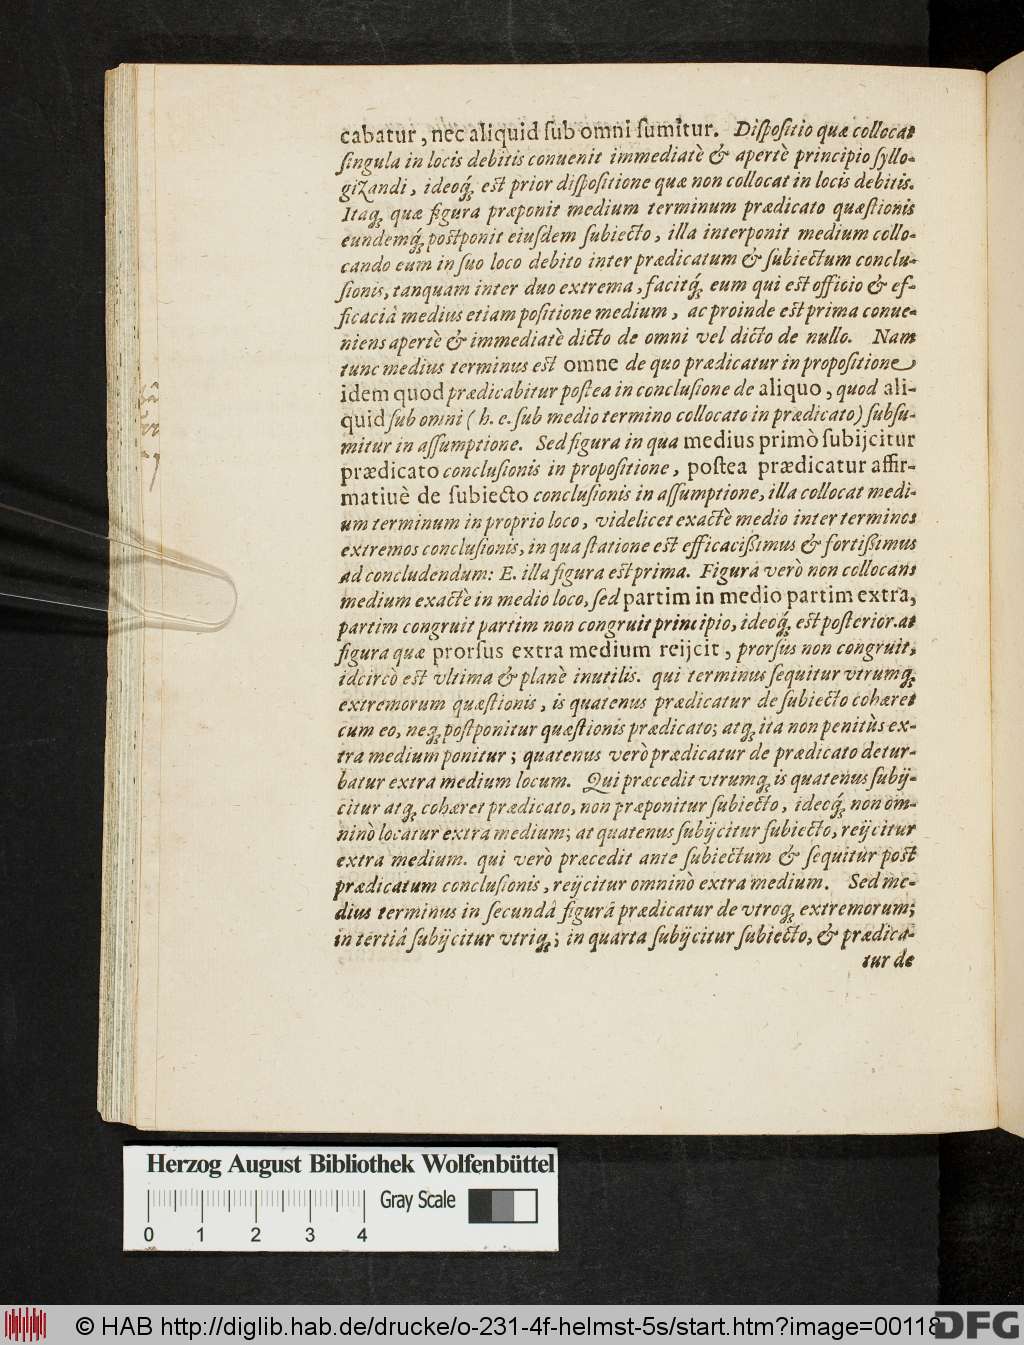 cabatur, nec aliquid ſub omni ſumitur. Diſpoſitio quæ collocat
ſingula in locis debitis conuenit immediatè & apertè principio ſyllo-
gizandi, ideoq́; est prior diſpoſitione quæ non collocat in locis debitis.
Itaq; quæ figura præponit medium terminum prædicato quæstionis
eundemq́; postponit eiuſdem ſubiecto, illa interponit medium collo-
cando eum in ſuo loco debito inter prædicatum & ſubiectum conclu-
ſionis, tanquam inter duo extrema, facitq́; eum qui est officio & ef-
ficaciâ medius etiam poſitione medium, ac proinde est prima conue-
niens apertè & immediatè dicto de omni vel dicto de nullo. Nam
tunc medius terminus est omne de quo prædicatur in propoſitione
idem quod prædicabitur postea in concluſione de aliquo, quod ali-
quid ſub omni (h. e. ſub medio termino collocato in prædicato) ſubſu-
mitur in aſſumptione. Sed figura in qua medius primò ſubijcitur
prædicato concluſionis in propoſitione, poſtea prædicatur affir-
matiuè de ſubiecto concluſionis in aſſumptione, illa collocat medi-
um terminum in proprio loco, videlicet exactè medio inter terminos
extremos concluſionis, in qua ſtatione est efficacißimus & fortißimus
ad concludendum: E. illa figura est prima. Figura verò non collocans
medium exactè in medio loco, ſed partim in medio partim extra,
partim congruit partim non congruit principio, ideoq́; est poſterior. at
figura quæ prorſus extra medium reijcit, prorſùs non congruit,
idcircò est vltima & planè inutilis. qui terminus ſequitur vtrumq;
extremorum quæstionis, is quatenus prædicatur de ſubiecto cohæret
cum eo, neq; postponitur quæstionis prædicato; atq; ita non penitùs ex-
tra medium ponitur; quatenus verò prædicatur de prædicato detur-
batur extra medium locum. Qui præcedit vtrumq; is quatenus ſubij-
citur atq; cohæret prædicato, non præponitur ſubiecto, ideoq́; non om-
ninò locatur extra medium; at quatenus ſubijcitur ſubiecto, reijcitur
extra medium. qui verò præcedit ante ſubiectum & ſequitur post
prædicatum concluſionis, reijcitur omninò extra medium. Sed me-
dius terminus in ſecundâ figurâ prædicatur de vtroq; extremorum;
in tertiâ ſubijcitur vtriq;; in quarta ſubijcitur ſubiecto, & prædica-
tur de
Herzog August Bibliothek Wolfenbüttel
Gray Scale
0 1 2 3 4
© HAB http://diglib.hab.de/drucke/o-231-4f-helmst-5s/start.htm?image=00118
DFG